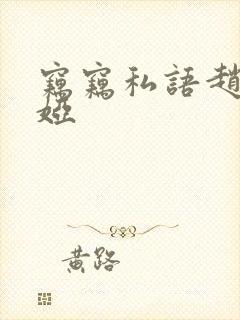 竊竊私語趙
婭
黃路